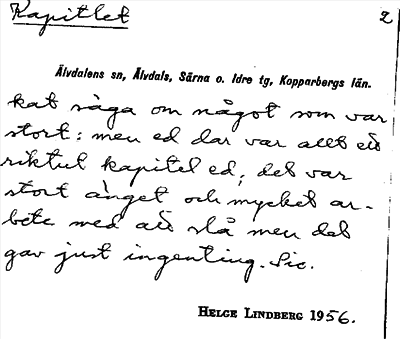 Kapitlet
2
Älvdalens sn, Älvdals, Särna o. Idre tg, Kopparbergs län.
kat säga om något som var
stort: men ed dar var allt eiđ
riktut kapitel ed; det var
stort änget och mycket ar-
bete med att slå men det
gav just ingenting. Sic.
HELGE LINDBERG 1956.